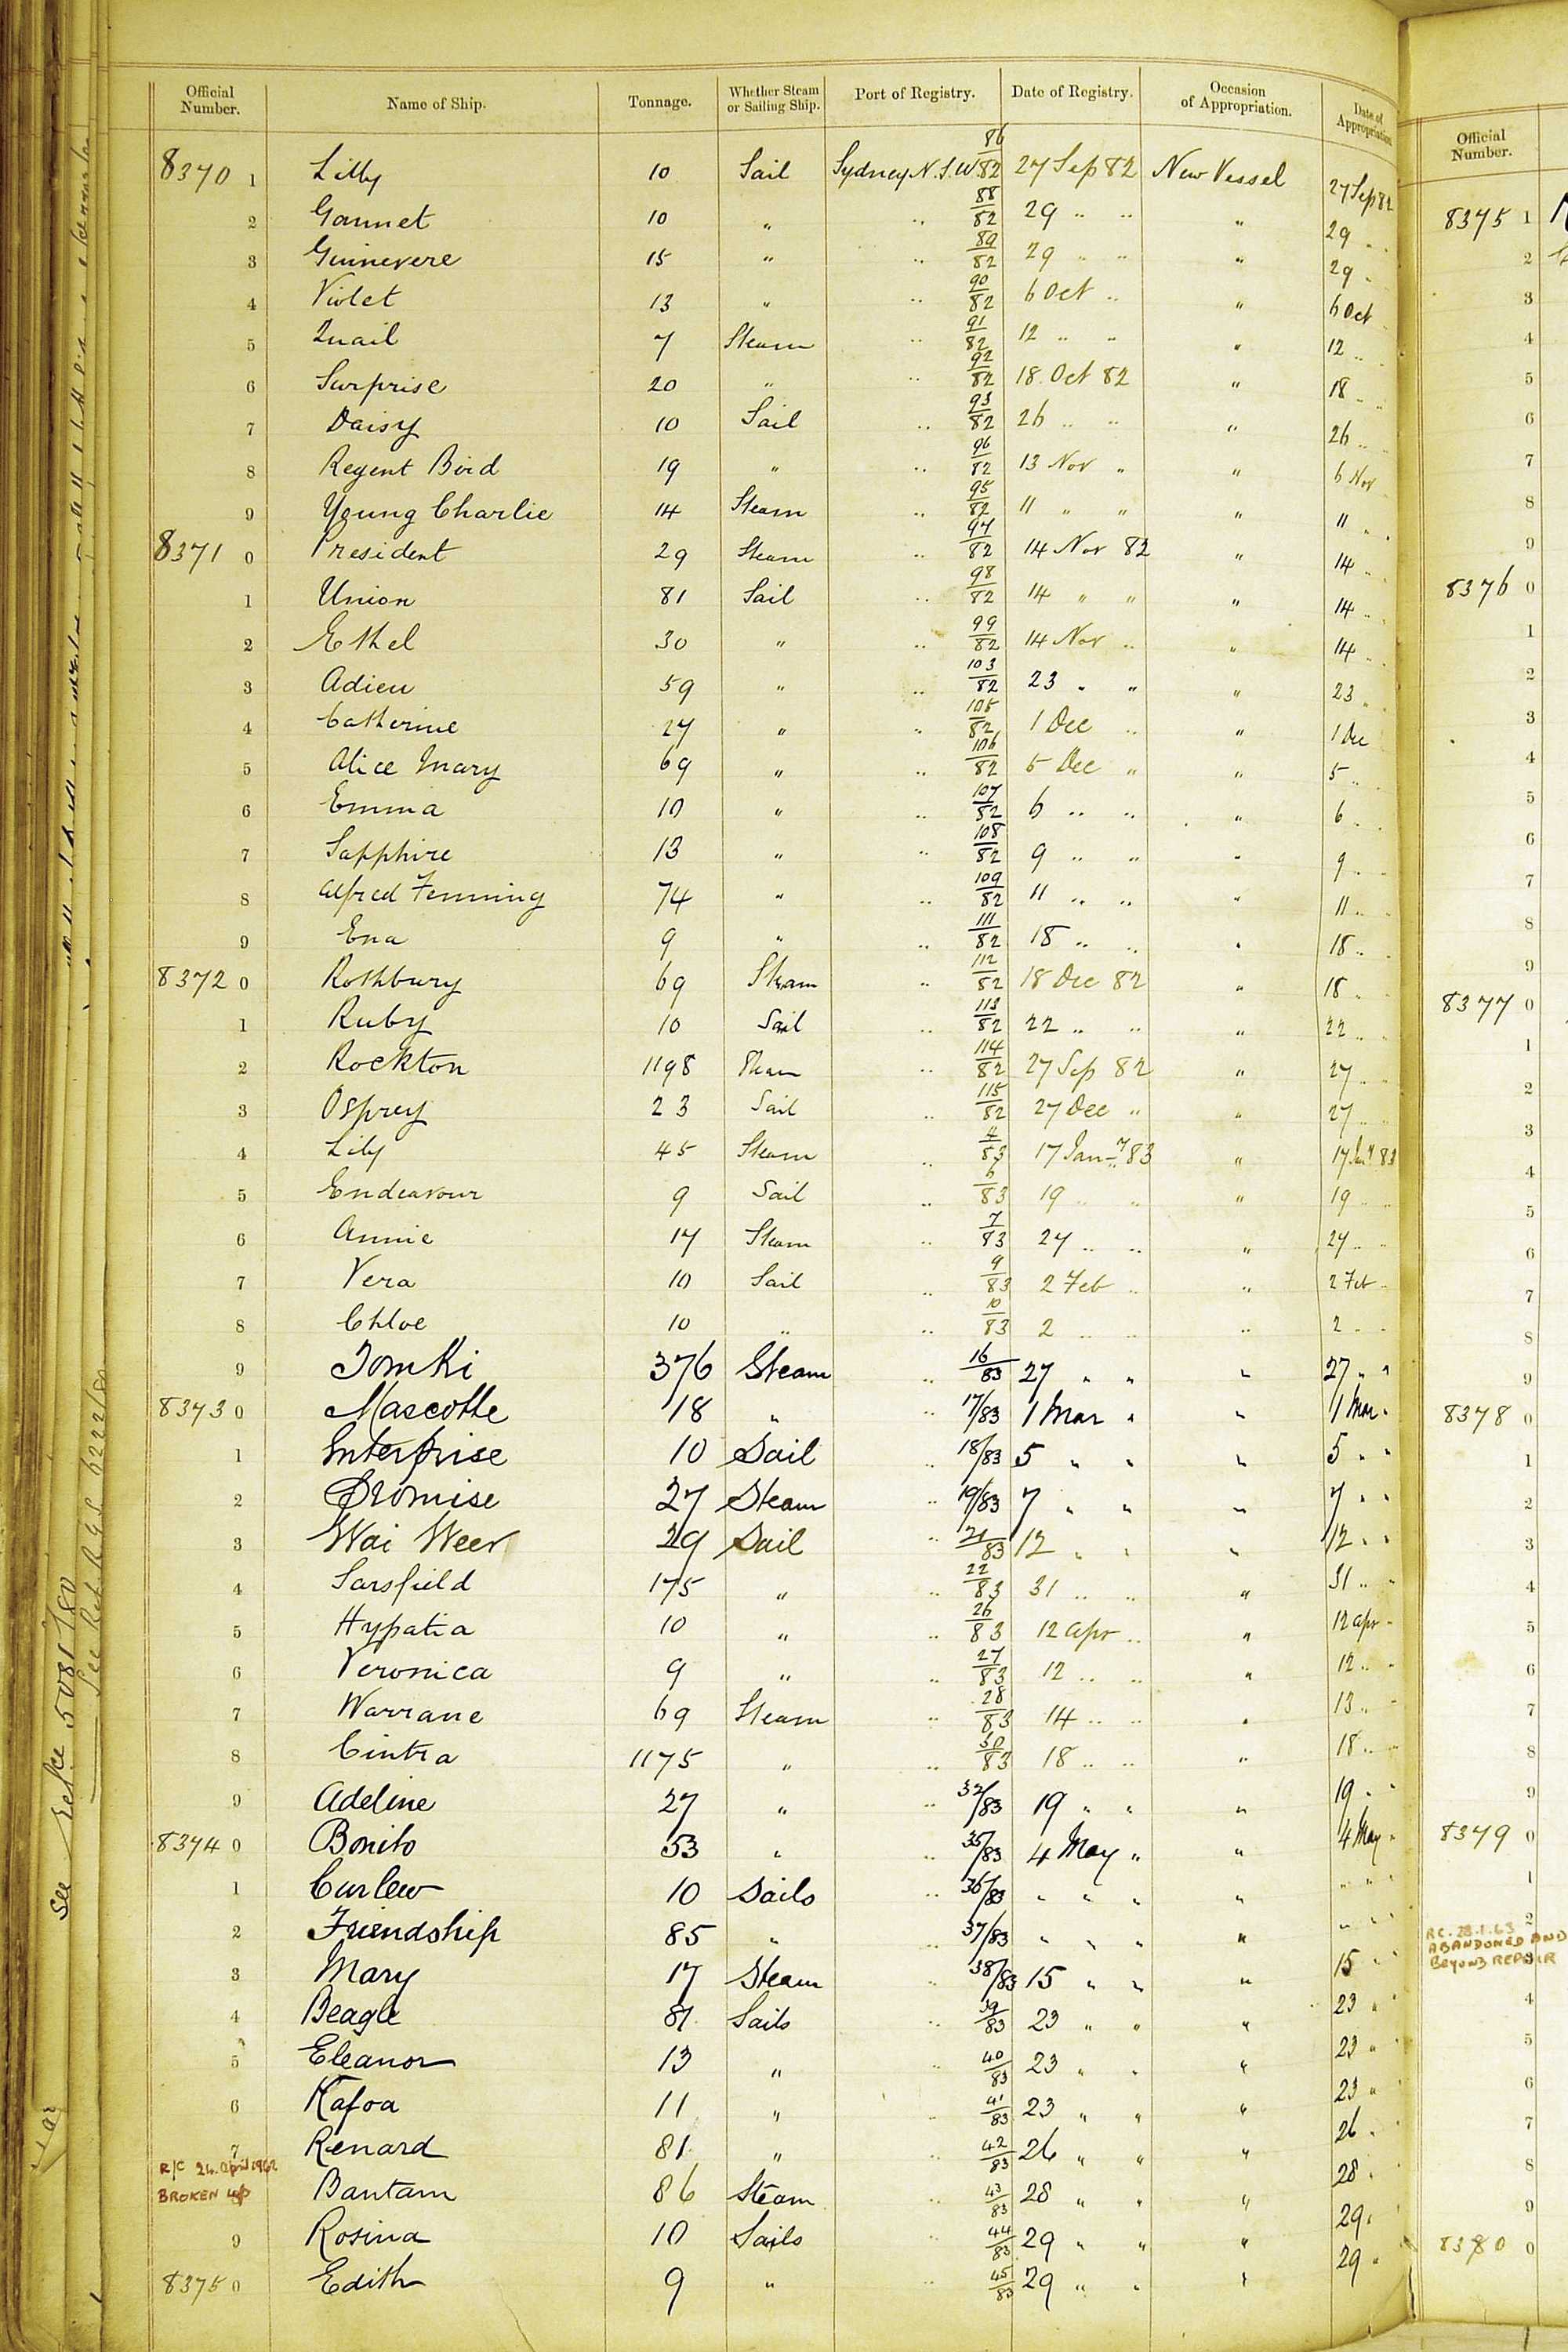 Official Number. Name of Ship. Tonnage. Whether Steam or Sailing Ship. Port of Registry. Date of Registry. Occasion of Appropriation. Date of Appropriation
8370 1 Lilly 10 Sail Sydney N.S.W 86/82 27 Sep 82 New Vessel 27 Sep 82
2 Gannet 10 " " 88/82 29 " " " 29 " "
3 Guinevere 15 " " 89/82 29 " " " 29 "
4 Violet 13 " " 90/82 6 Oct " " 6 Oct
5 Quail 7 Steam " 91/82 12 " " " 12 "
6 Surprise 20 " " 92/82 18 Oct 82 " 18 " "
7 Daisy 10 Sail " 93/82 26 " " " 26 "
8 Regent Bird 19 " " 96/82 13 Nov " " 6 Nov
9 Young Charlie 14 Steam " 95/82 11 " " " 11 " "
8371 0 President 29 Steam " 97/82 14 Nov 82 " 14 "
1 Union 81 Sail " 98/82 14 " " " 14 "
2 Ethel 30 " " 99/82 14 Nov " " 14 "
3 Adieu 59 " " 103/82 23 " " " 23 "
4 Catherine 27 " " 105/82 1 Dec " " 1 Dec
5 Alice Mary 69 " " 106/82 5 Dec " " 5 "
6 Emma 10 " " 107/82 6 " " " 6 "
7 Sapphire 13 " " 108/82 9 " " " 9 "
8 Alfred Fenning 74 " " 109/82 11 " " " 11 "
9 Ena 9 " " 111/82 18 " " " 18 "
8372 0 Rothbury 69 Steam " 112/82 18 Dec 82 " 18 "
1 Ruby 10 Sail " 113/82 22 " " " 22 "
2 Rockton 1198 Steam " 114/82 27 Sep 82 " 27 "
3 Osprey 23 Sail " 115/82 27 Dec " " 27 "
4 Lily 45 Steam " 4/83 17 Jany 83 " 17 Jany 83
5 Endeavour 9 Sail " 6/83 19 " " " 19 "
6 Annie 17 Steam " 7/83 24 " " " 24 "
7 Vera 10 Sail " 9/83 2 Feb " " 2 Feb "
8 Chloe 10 " " 10/83 2 " " " 2 " "
9 Tomki 376 Steam " 16/83 27 " " " 27 " "
8373 0 Mascotte 18 " " 17/83 1 Mar " " 1 Mar "
1 Enterprise 10 Sail " 18/83 5 " " " 5 " "
2 Promise 27 Steam " 19/83 7 " " " 7 " "
3 Wai Weer 29 Sail " 21/83 12 " " " 12 " "
4 Sarsfield 175 " " 22/83 31 " " " 31 " "
5 Hypatia 10 " " 26/83 12 Apr " " 12 Apr "
6 Veronica 9 " " 27/83 12 " " " 12 " "
7 Warrane 69 Steam " 28/83 14 " " " 13 " "
8 Cintra 1175 " " 30/83 18 " " " 18 " "
9 Adeline 27 " " 32/83 19 " " " 19 " "
8374 0 Bonito 53 " " 35/83 4 May " " 4 May "
1 Curlew 10 Sails " 36/83 " " " " " " "
2 Friendship 85 " " 37/83 " " " " " " "
3 Mary 17 Steam " 38/83 15 " " " 15 " "
4 Beagle 81 Sails " 39/83 23 " " " 23 " "
5 Eleanor 13 " " 40/83 23 " " " 23 " "
6 Kafoa 11 " " 41/83 23 " " " 23 " "
7 Renard 81 " " 42/83 26 " " " 26 " "
R/C 24. April 1962
BROKEN up
Bantam 86 Steam " 43/83 28 " " " 28 "
9 Rosina 10 Sails " 44/83 29 " " " 29 "
8375 0 Edith 9 " " 45/83 29 " " " 29 "
See Refce 5081/80
See Ref RGS 6222/80
Official Number.
8375 1
2
3
4
5
6
7
8
9
8376 0
1
2
3
4
5
6
7
8
9
8377 0
1
2
3
4
5
6
7
8
9
8378 0
1
2
3
4
5
6
7
8
9
8379 0
1
2
R.C. 28.1.63
ABANDONED AND
3
Beyond REPAIR
4
5
6
7
8
9
8380 0